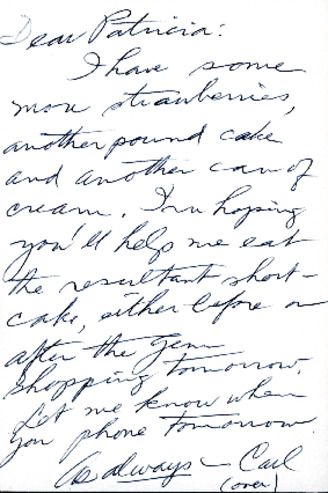 Dear Patricia:
I have some
more strawberries,
another pound cake
and another can of
cream. I'm hoping
you'll help me eat
the resultant short-
cake, either before or
after the
shopping tomorrow.
Let me know when
you phone tomorrow.
As always – Carl
(over)